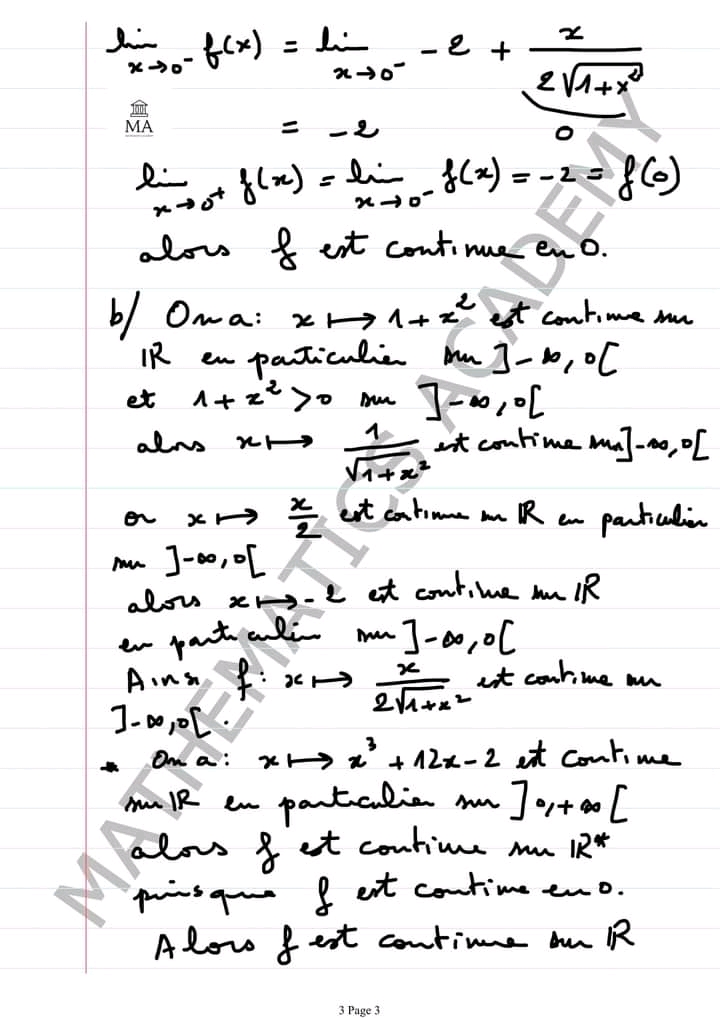 lim x→0⁻ f(x) = lim x→0⁻ -2 + x / 2√1+x²
MA
= -2    0
lim x→0⁺ f(x) = lim x→0⁻ f(x) = -2 = f(0)
alors f est continue en 0.
b/ On a: x ↦ 1+x² est continue sur
IR en particulier sur ]-∞,0[
et 1+x² > 0 sur ]-∞,0[
alors x ↦ 1/√1+x² est continue sur ]-∞,0[
or x ↦ x/2 est continue sur IR en particulier
sur ]-∞,0[
alors x ↦ -2 est continue sur IR
en particulier sur ]-∞,0[
Ainsi f: x ↦ x / 2√1+x² est continue sur
]-∞,0[.
* On a: x ↦ x³ + 12x - 2 est continue
sur IR en particulier sur ]0,+∞[
alors f est continue sur IR*
puisque f est continue en 0.
Alors f est continue sur IR
MATHEMATICS ACADEMY
3 Page 3